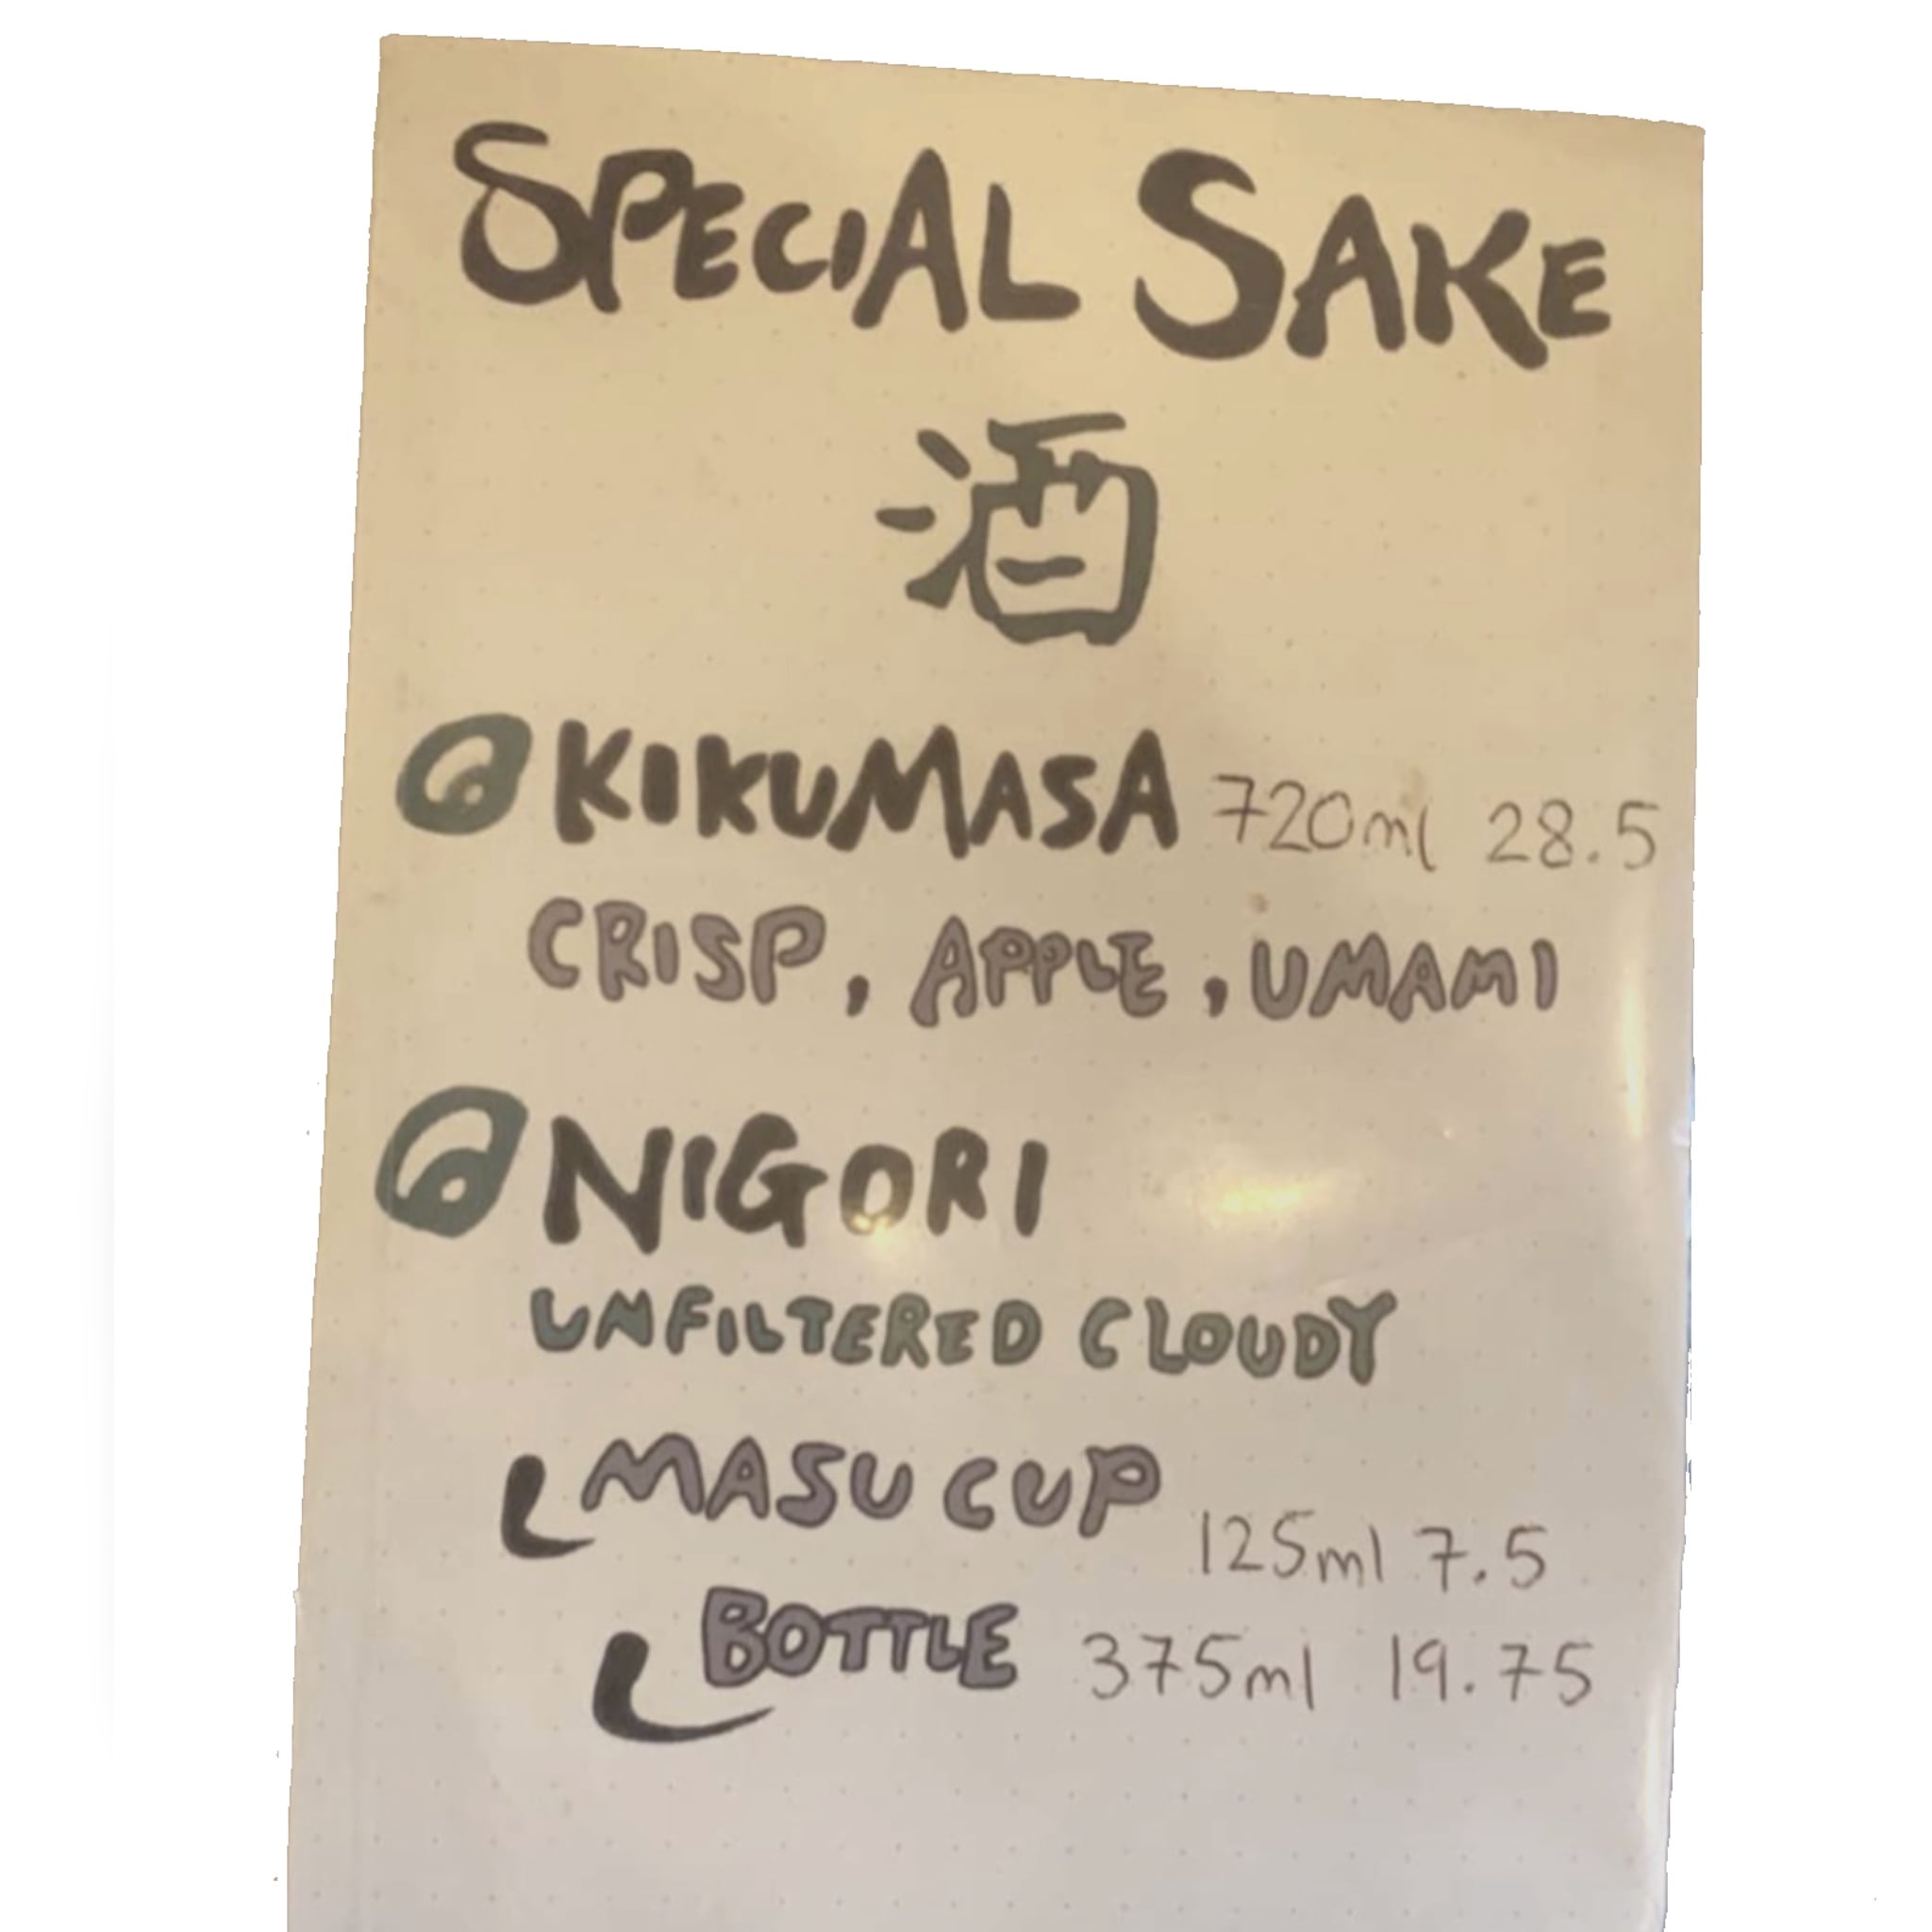 SPECIAL SAKE
酒
KIKUMASA 720ml 28.5
CRISP, APPLE, UMAMI
NIGORI
UNFILTERED CLOUDY
MASU CUP 125ml 7.5
BOTTLE 375ml 19.75